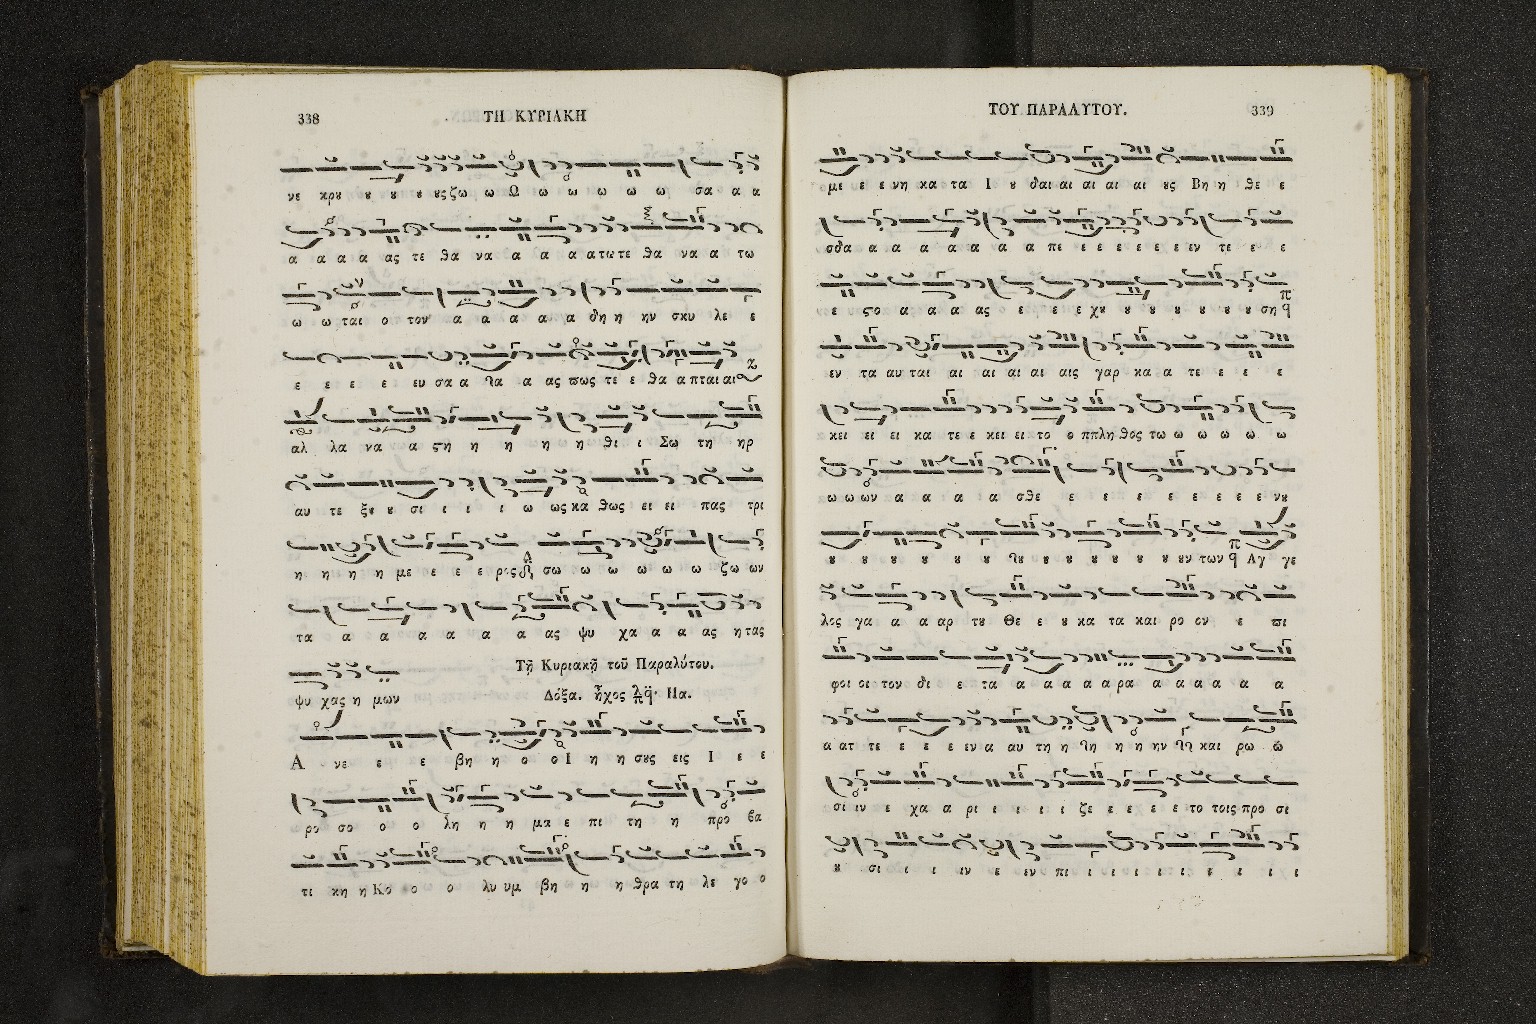 338
ΤΗ ΚΥΡΙΑΚΗ
νε κρȣ ȣ ȣ ȣ ȣς ζω ω Ω ω ω ω ω ω σα α α
α α α α ας τε θα να α α α α τω τε θα να α τω
ω ω ται ο τον α α α α α δη η ην σκυ λε ε
ε ε ε ε ευ σα α λα α ας πως τε ε θα α πται αι
αλ λα να α ϛη η η η η θι ι Σω τη ηρ
αυ τε ξȣ ȣ σι ι ι ι ω ως κα θως ει ει πας τρι
η η η η με ε ε ε ρος σω ω ω ω ω ω ζω ων
τα α α α α α α ας ψυ χα α α ας η τας
Τῇ Κυριακῇ τοῦ Παραλύτου.
ψυ χας η μων
Δόξα. ἦχος Πα.
Α νε ε ε βη η ο ο Ι η η σȣς εις Ι ε ε
ρο σο ο ο λη η η μα ε πι τη η προ βα
τι κη η Κο ο ο λυ υμ βη η η θρα τη λε γο ο
ΤΟΥ ΠΑΡΑΛΥΤΟΥ.
339
με ε ε νη κα τα Ι ȣ δαι αι αι αι αι ȣς Βη η θε ε
σδα α α α α α α α πε ε ε ε ε ε ε εν τε ε ε
ε ϛο α α α ας ε ε ε χȣ ȣ ȣ ȣ ȣ ȣ ȣ ση
εν τα αυ ται αι αι αι αι αις γαρ κα α τε ε ε ε
κει ει ει κα τε ε κει ει το ο ππλη θος τω ω ω ω ω ω
ω ω ων α α α α σθε ε ε ε ε ε ε ε ε νȣ
ȣ ȣ ȣ ȣ ȣ ȣ ȣ ȣ ȣ ȣ ȣ ȣ ȣ ȣν των Αγ γε
λος γα α α αρ τȣ Θε ε ȣ κα τα και ρο ον ε πι
φοι οι τον δι ε τα α α α α α ρα α α α α α α
α ατ τε ε ε ε εν α αυ τη η λη η η ην και ρω ω
σι ιν ε χα α ρι ι ι ι ι ζε ε ε ε ε το τοις προ σι
ȣ σι ι ι ιν ε εν πι ι ι ι ι ι ι ι ι